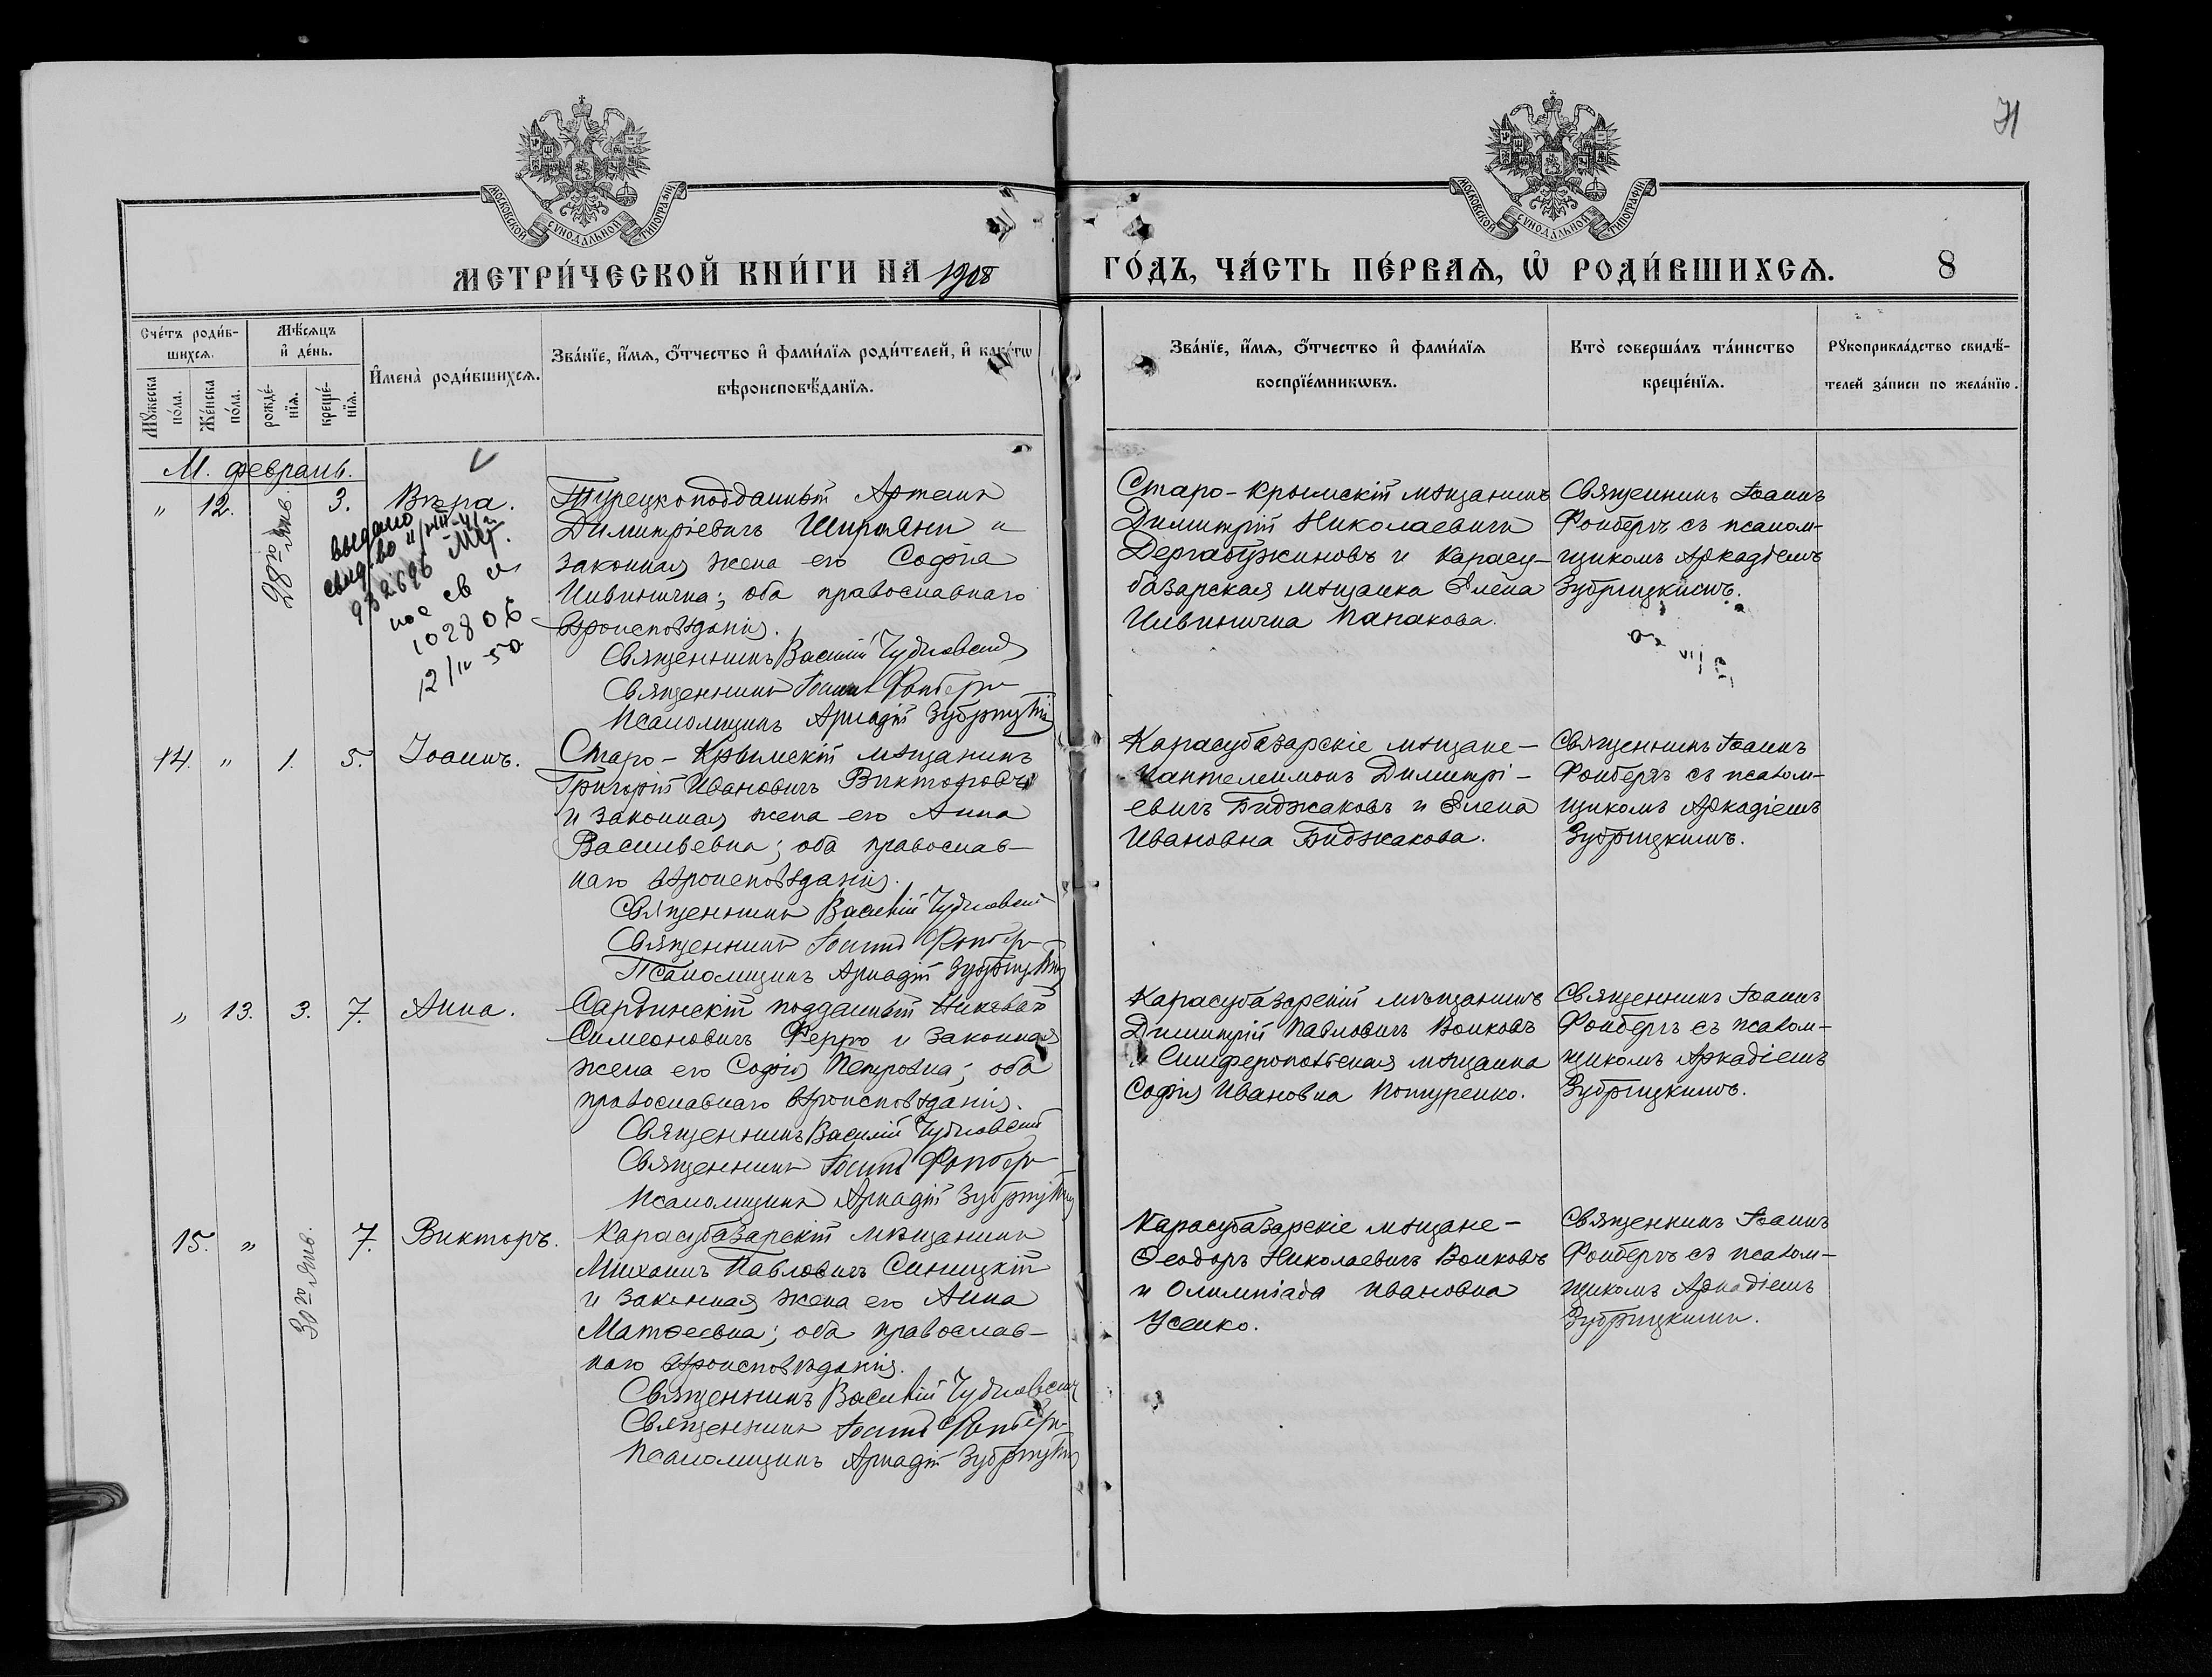 71
МОСКОВСКОЙ СѴНОДАЛЬНОЙ ТИПОГРАФІИ
МОСКОВСКОЙ СѴНОДАЛЬНОЙ ТИПОГРАФІИ
МЕТРИ́ЧЕСКОЙ КНИ́ГИ НА 1908
ГО́ДЪ, ЧА́СТЬ ПЕ́РВАЯ, Ѡ РОДИ́ВШИХСЯ. 8
Сче́тъ роди́в-
шихся.
Мѣ́сяцъ
и де́нь.
Мꙋ́жеска по́ла.
Же́нска по́ла.
рожде́-
нїя.
креще́-
нїя.
Имена̀ роди́вшихся.
Зва́нїе, и́мя, о́тчество и фами́лїя роди́телей, и како́гѡ
вѣроисповѣ́данїя.
Зва́нїе, и́мя, о́тчество и фами́лїя
воспрїе́мникѡвъ.
Кто̀ соверша́лъ та́инство
креще́нїя.
Рꙋкоприкла́дство свидѣ́-
телей за́писи по жела́нїю.
М. февраль.
" 12. 28го Янв. 3. Вѣра.
выдано
свид-во
932696
102806
12/IV-50
Турецкоподданный Артемъ
Димитріевич Ширмени и
законная жена его Софія
Ильинична; оба православнаго
вѣроисповѣданія.
Священникъ Василій Чудновскій
Священникъ Іоаннъ Фонберг
Псаломщикъ Аркадій Зубрицкій
Старо-Крымскій мѣщанинъ
Димитрій Николаевичъ
Дергабужиновъ и Карасу-
базарская мѣщанка Елена
Ильинична Папакова.
Священникъ Іоаннъ
Фонбергъ съ псалом-
щикомъ Аркадіемъ
Зубрицкимъ.
14. " 1. 5. Іоаннъ.
Старо-Крымскій мѣщанинъ
Григорій Ивановичъ Викторовъ
и законная жена его Анна
Васильевна; оба православ-
наго вѣроисповѣданія.
Священникъ Василій Чудновскій
Священникъ Іоаннъ Фонберг
Псаломщикъ Аркадій Зубрицкій
Карасубазарскіе мѣщане-
Пантелеимонъ Димитрі-
евичъ Биджаковъ и Елена
Ивановна Биджакова.
Священникъ Іоаннъ
Фонбергъ съ псалом-
щикомъ Аркадіемъ
Зубрицкимъ.
" 13. 3. 7. Анна.
Сардинскій подданный Николай
Симеоновичъ Ферро и законная
жена его Софія Петровна; оба
православнаго вѣроисповѣданія.
Священникъ Василій Чудновскій
Священникъ Іоаннъ Фонберг
Псаломщикъ Аркадій Зубрицкій
Карасубазарскій мѣщанинъ
Димитрій Павловичъ Волковъ
и Симферопольская мѣщанка
Софія Ивановна Потуренко.
Священникъ Іоаннъ
Фонбергъ съ псалом-
щикомъ Аркадіемъ
Зубрицкимъ.
15. " 30го Янв. 7. Викторъ.
Карасубазарскій мѣщанинъ
Михаилъ Павловичъ Синицкій
и законная жена его Анна
Матѳеевна; оба православ-
наго вѣроисповѣданія.
Священникъ Василій Чудновскій
Священникъ Іоаннъ Фонберг
Псаломщикъ Аркадій Зубрицкій
Карасубазарскіе мѣщане-
Ѳеодоръ Николаевичъ Волковъ
и Олимпіада Ивановна
Усенко.
Священникъ Іоаннъ
Фонбергъ съ псалом-
щикомъ Аркадіемъ
Зубрицкимъ.